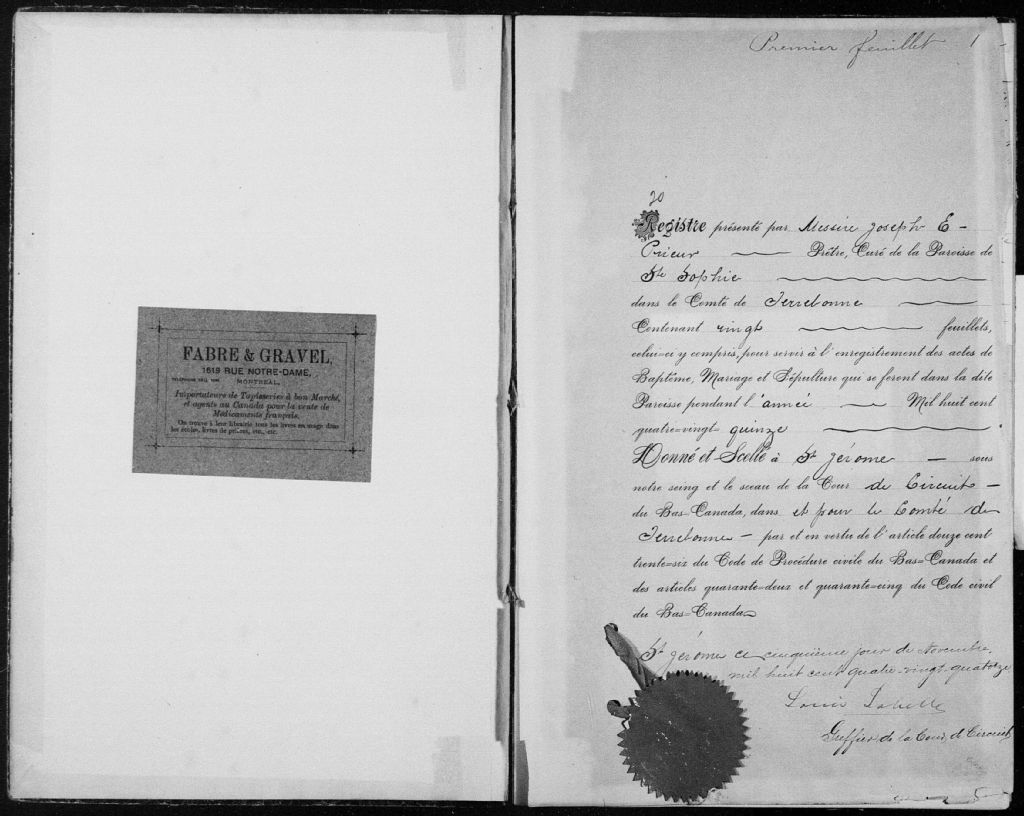 FABRE & GRAVEL,
1619 RUE NOTRE-DAME,
MONTREAL,
Importateurs de Tapisseries à bon Marché,
et agents au Canada pour la vente de
Médicaments français.
On trouve à leur librairie tous les livres en usage dans
les écoles, livres de prières, etc., etc.
Premier feuillet 1
20
Registre présenté par Messire Joseph E
Prieur Prêtre, Curé de la Paroisse de
Ste Sophie
dans le Comté de Terrebonne
Contenant vingt feuillets,
celui-ci y compris, pour servir à l'enregistrement des actes de
Baptême, Mariage et Sépulture qui se feront dans la dite
Paroisse pendant l'année Mil huit cent
quatre-vingt-quinze
Donné et Scellé à St Jérome sous
notre seing et le sceau de la Cour de Circuit
du Bas-Canada, dans et pour le Comté de
Terrebonne par et en vertu de l'article douze cent
trente-six du Code de Procédure civile du Bas-Canada et
des articles quarante-deux et quarante-cinq du Code civil
du Bas-Canada
St Jérome ce cinquième jour de Novembre,
mil huit cent quatre-vingt-quatorze
Greffier de la Cour de Circuit